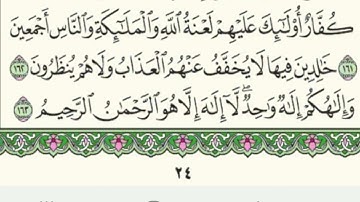 كُفَّارٌ أُولَٰٓئِكَ عَلَيْهِمْ لَعْنَةُ ٱللَّهِ وَٱلْمَلَٰٓئِكَةِ وَٱلنَّاسِ أَجْمَعِينَ
١٦١ خَٰلِدِينَ فِيهَا لَا يُخَفَّفُ عَنْهُمُ ٱلْعَذَابُ وَلَا هُمْ يُنظَرُونَ ١٦٢
وَإِلَٰهُكُمْ إِلَٰهٌ وَٰحِدٌ لَّآ إِلَٰهَ إِلَّا هُوَ ٱلرَّحْمَٰنُ ٱلرَّحِيمُ ١٦٣
٢٤